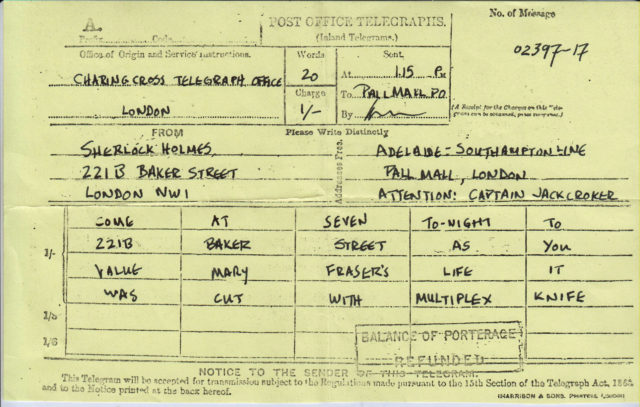 A.
POST OFFICE TELEGRAPHS.
No. of Message
Prefix Code
(Inland Telegrams.)
02397-17
Office of Origin and Service Instructions.
Words
Sent.
CHARING CROSS TELEGRAPH OFFICE
20
At 1.15 P.M
Charge
To PALL MALL P.O.
LONDON
1/-
By
(A Receipt for the Charges on this
FROM
Please Write Distinctly
SHERLOCK HOLMES,
ADELAIDE-SOUTHAMPTON LINE
221B BAKER STREET
PALL MALL, LONDON
LONDON NW1
ATTENTION: CAPTAIN JACK CROKER
COME AT SEVEN TO-NIGHT TO
221B BAKER STREET AS YOU
1/-
VALUE MARY FRASER'S LIFE IT
WAS CUT WITH MULTIPLEX KNIFE
1/3
1/6
BALANCE OF PORTERAGE
REFUNDED
NOTICE TO THE SENDER OF THIS TELEGRAM.
This Telegram will be accepted for transmission subject to the Regulations made pursuant to the 15th Section of the Telegraph Act, 1863
and to the Notice printed at the back hereof.
HARRISON & SONS, Printers, London